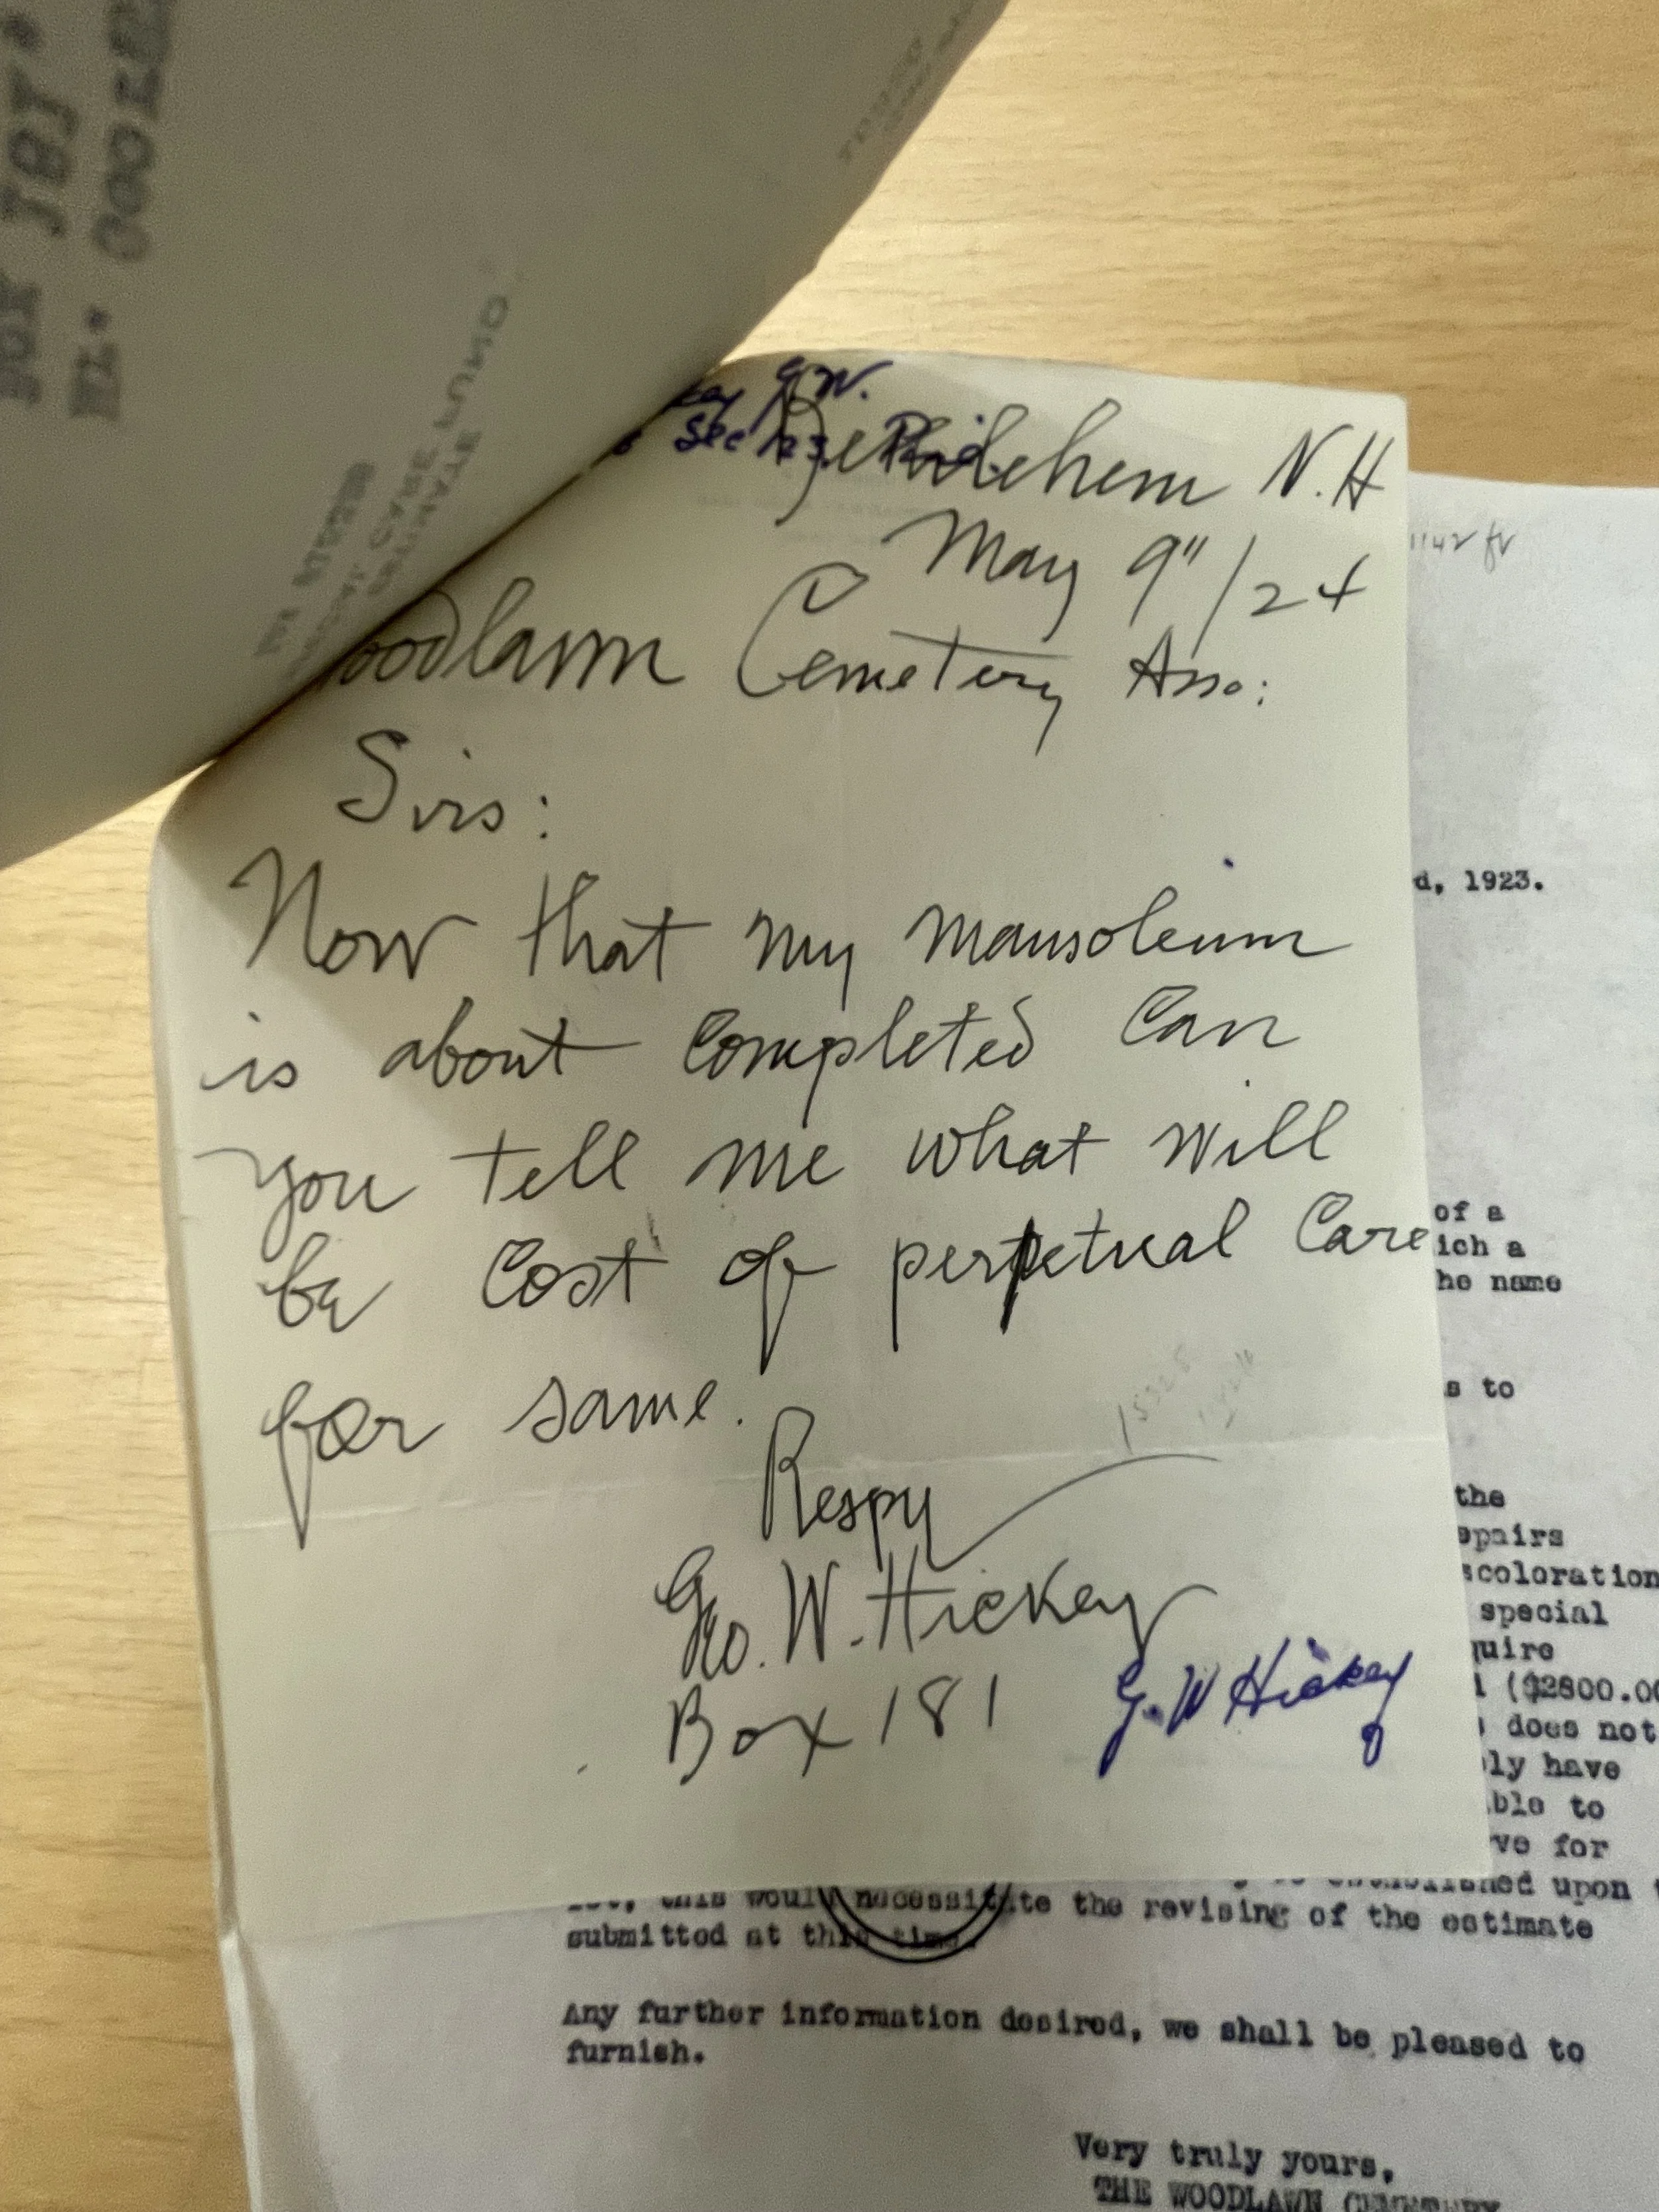 BOX 181.
G.W.
sec 123. Phlox
Bethlehem N.H
May 9"/24
oodlawn Cemetery Asso:
Sirs:
Now that my mausoleum
is about Completed Can
you tell me what will
be Cost of perpetual Care
for same.
Respy
Geo. W. Hickey
Box 181
G. W Hickey
d, 1923.
of a
ich a
he name
s to
the
epairs
scoloration
special
quire
($2800.00
does not
ly have
ble to
ve for
established upon
this would necessitate the revising of the estimate
submitted at this time.
Any further information desired, we shall be pleased to
furnish.
Very truly yours,
THE WOODLAWN CEMETERY